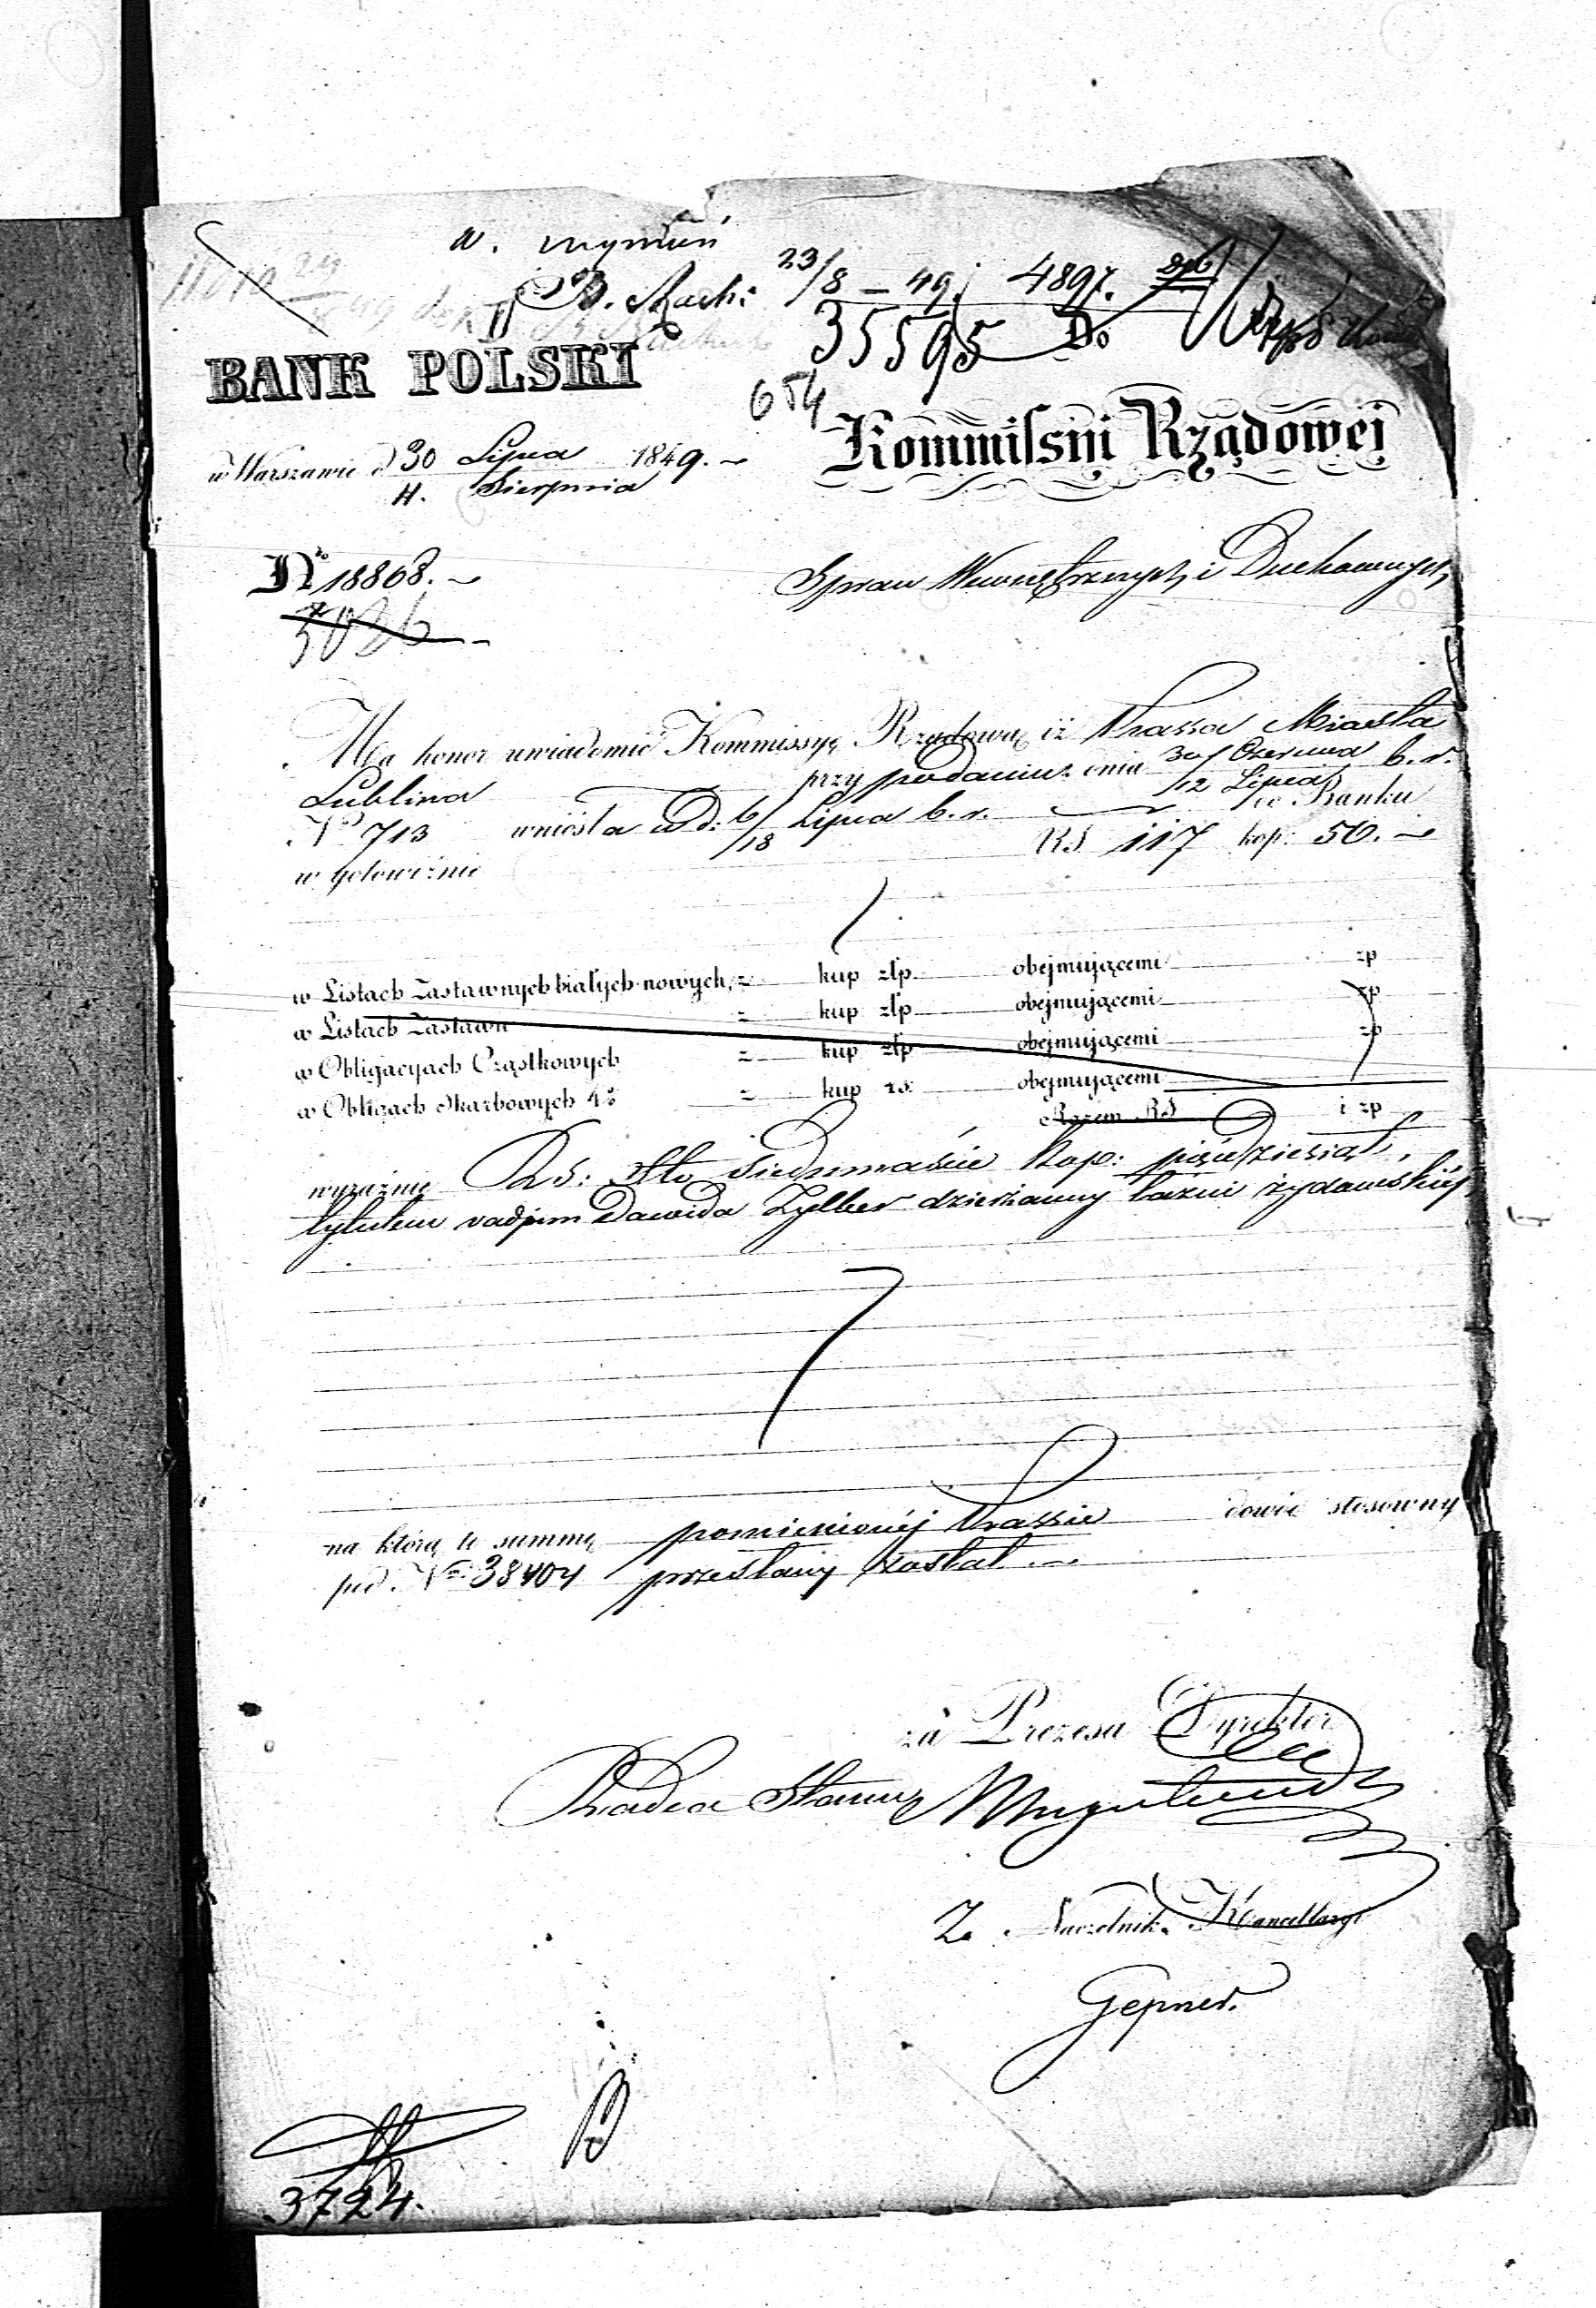 23/8 – 49. 4897.
35595 Do
BANK POLSKI
654
Kommissyi Rządowej
w Warszawie d 30 Lipca 1849. –
11. Sierpnia
Spraw Wewnętrznych i Duchownych
No 18868. –
Ma honor uwiadomić Kommissyę Rządową iż Kassa Miasta
Lublina przy podaniu z dnia 30/12 Czerwca/Lipca b. r.
No 713 wniosła w d: 6/18 Lipca b. r. do Banku
w gotowiźnie RS 117 kop: 50. –
w Listach Zastawnych białych nowych, z kup złp obejmującemi zp
w Listach Zastawn z kup złp obejmującemi zp
w Obligacyach Cząstkowych z kup złp obejmującemi zp
w Obligach Skarbowych 4% z kup rs: obejmującemi
Razem RS i zp
wyraźnie Rs: Sto siedmnaście kop: pięćdziesiąt,
tytułem vadjum Dawida Zylber dzierżawcy łaźni żydowskiéj
na którą to summę pomienionéj Kassie dowód stosowny
pod No 38404 przesłany został. –
za Prezesa Dyrektor
Radca Stanu
Z. Naczelnik Kancellaryi
Gepner.
3724.